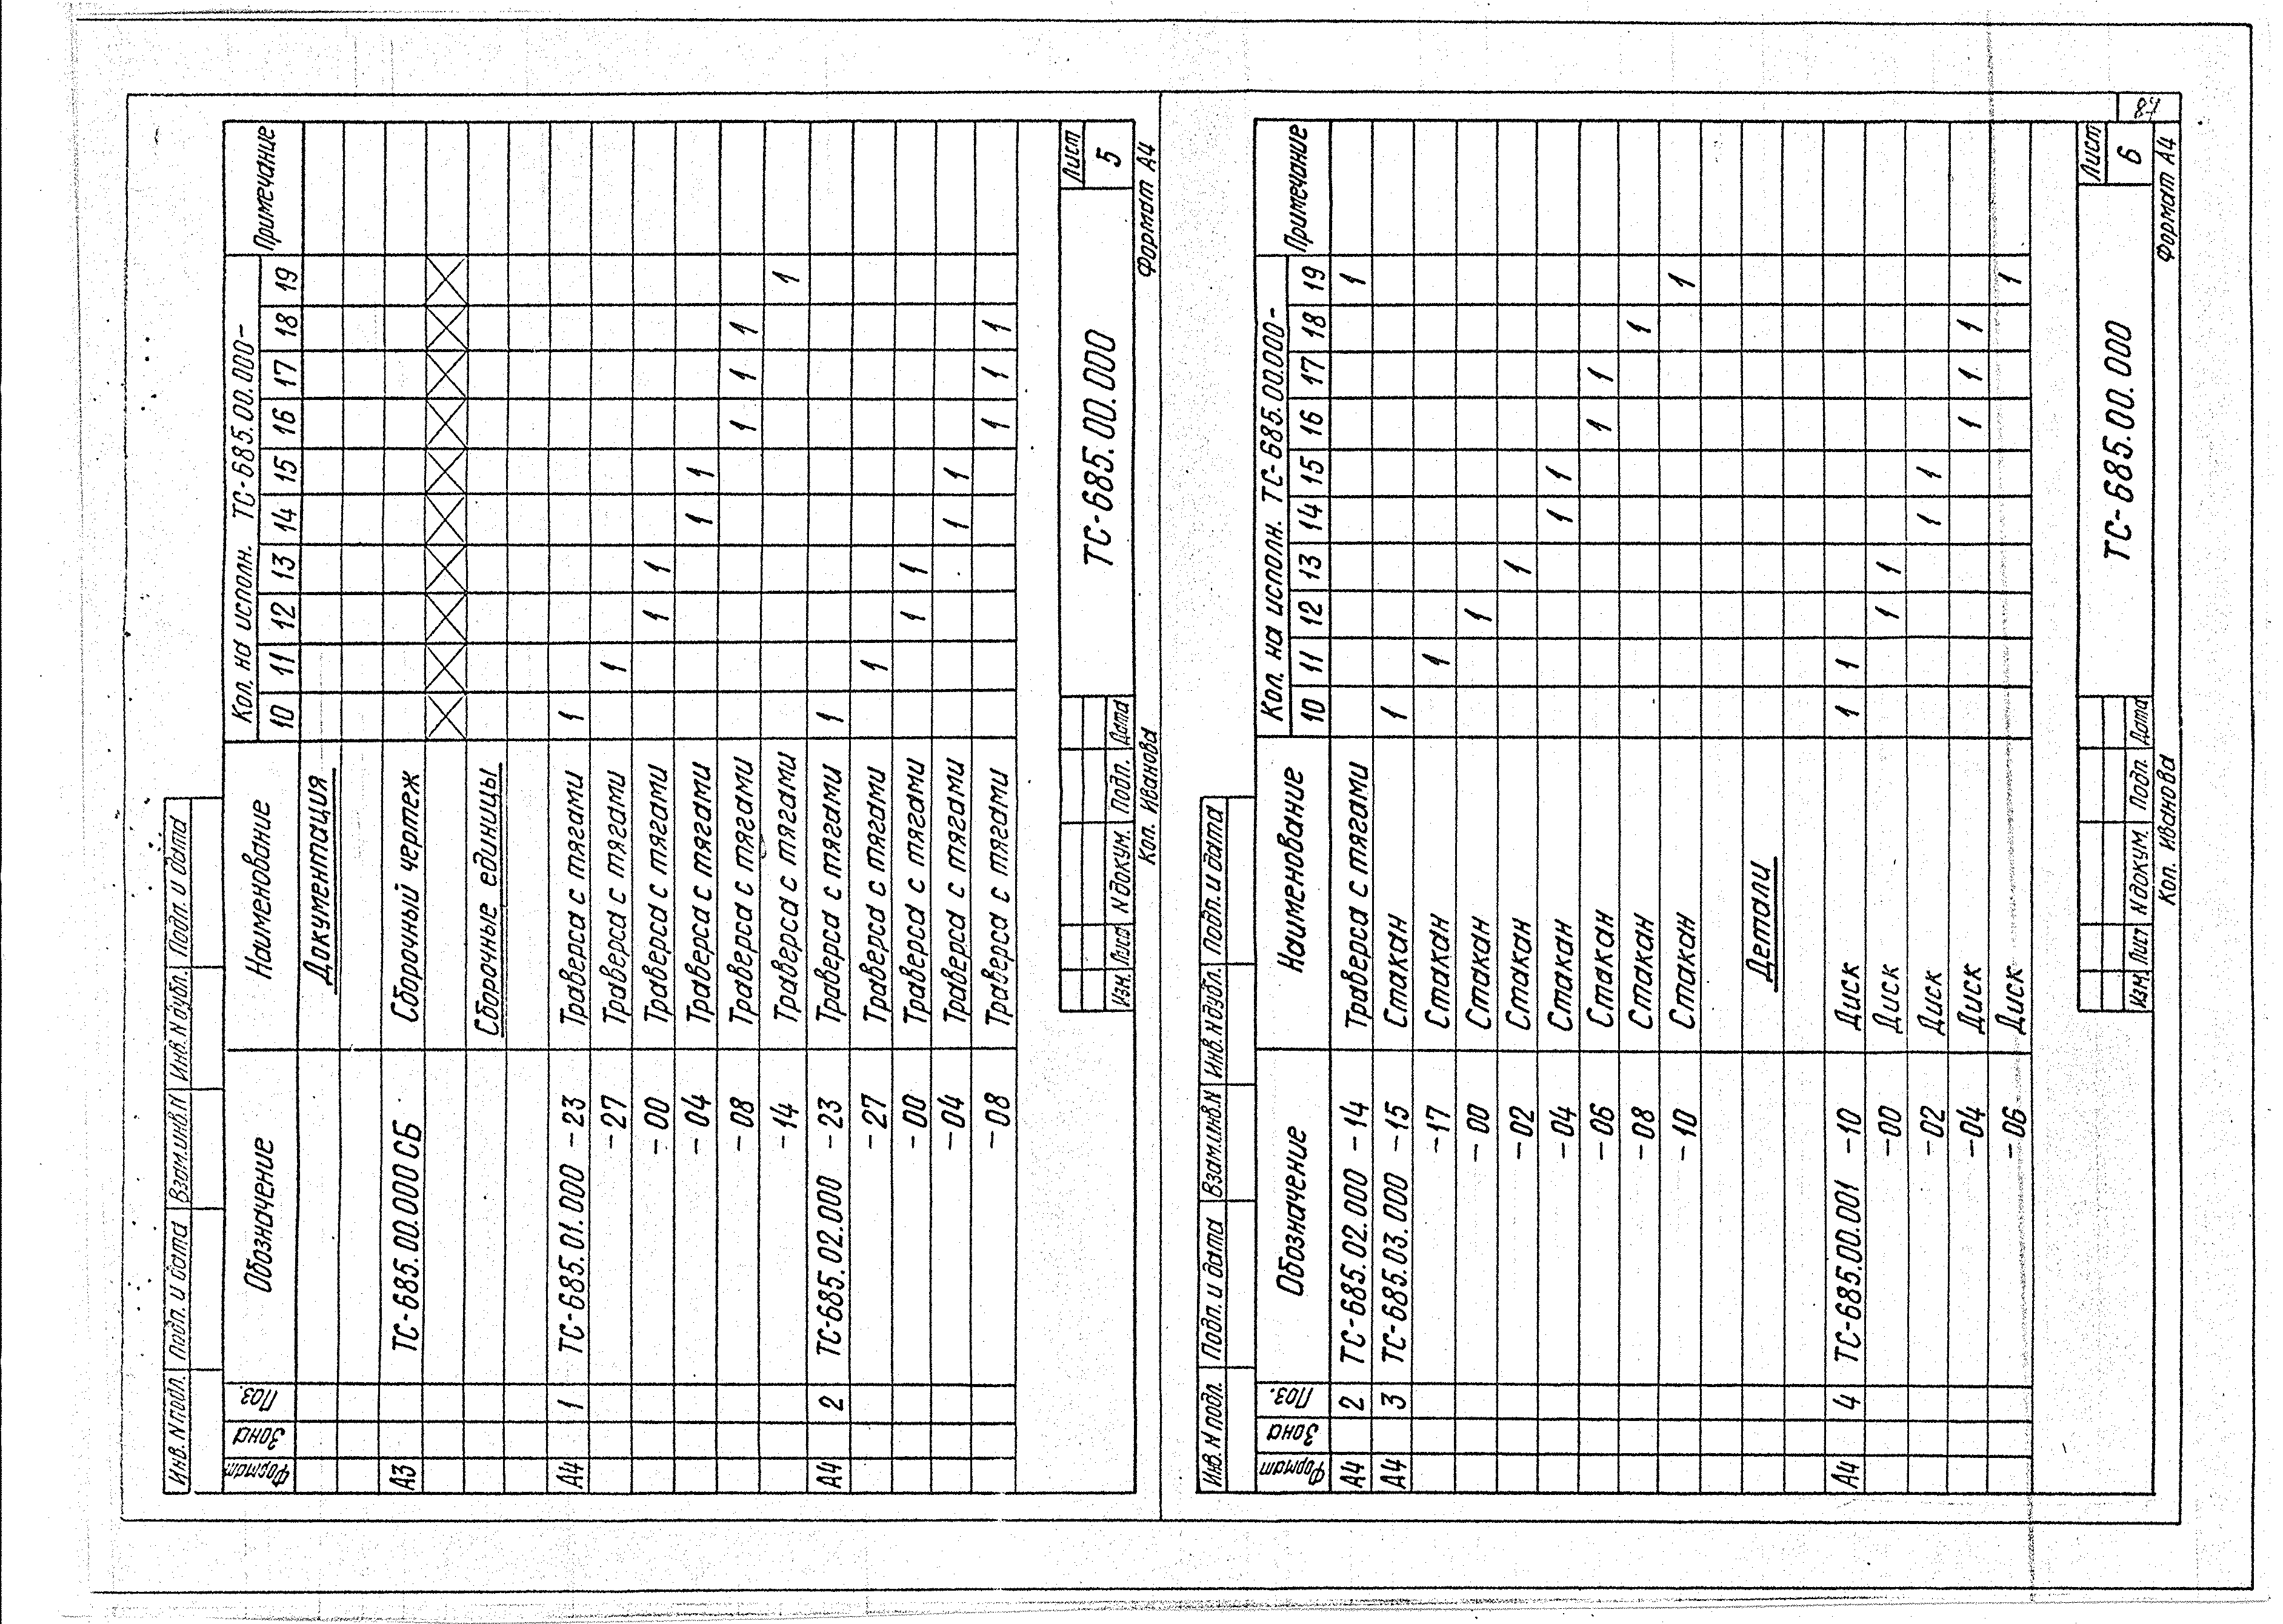 Формат Зона Поз. Обозначение Наименование Кол. на исполн. ТС-685.00.000- Примечание
10 11 12 13 14 15 16 17 18 19
Документация
А3 ТС-685.00.000 СБ Сборочный чертеж
Сборочные единицы
А4 1 ТС-685.01.000 -23 Траверса с тягами 1
-27 Траверса с тягами 1
-00 Траверса с тягами 1 1
-04 Траверса с тягами 1 1
-08 Траверса с тягами 1 1 1
-14 Траверса с тягами 1
А4 2 ТС-685.02.000 -23 Траверса с тягами 1
-27 Траверса с тягами 1
-00 Траверса с тягами 1 1
-04 Траверса с тягами 1 1
-08 Траверса с тягами 1 1 1
Инв. N подл. Подп. и дата Взам.инв.N Инв. N дубл. Подп. и дата
Изм. Лист N докум. Подп. Дата
ТС-685.00.000
Лист
5
Коп. Иванова Формат А4
Формат Зона Поз. Обозначение Наименование Кол. на исполн. ТС-685.00.000- Примечание
10 11 12 13 14 15 16 17 18 19
А4 2 ТС-685.02.000 -14 Траверса с тягами 1
А4 3 ТС-685.03.000 -15 Стакан 1
-17 Стакан 1
-00 Стакан 1
-02 Стакан 1
-04 Стакан 1 1
-06 Стакан 1 1
-08 Стакан 1
-10 Стакан 1
Детали
А4 4 ТС-685.00.001 -10 Диск 1 1
-00 Диск 1 1
-02 Диск 1 1
-04 Диск 1 1 1
-06 Диск 1
Инв. N подл. Подп. и дата Взам.инв.N Инв. N дубл. Подп. и дата
Изм. Лист N докум. Подп. Дата
ТС-685.00.000
Лист
6
Коп. Иванова Формат А4